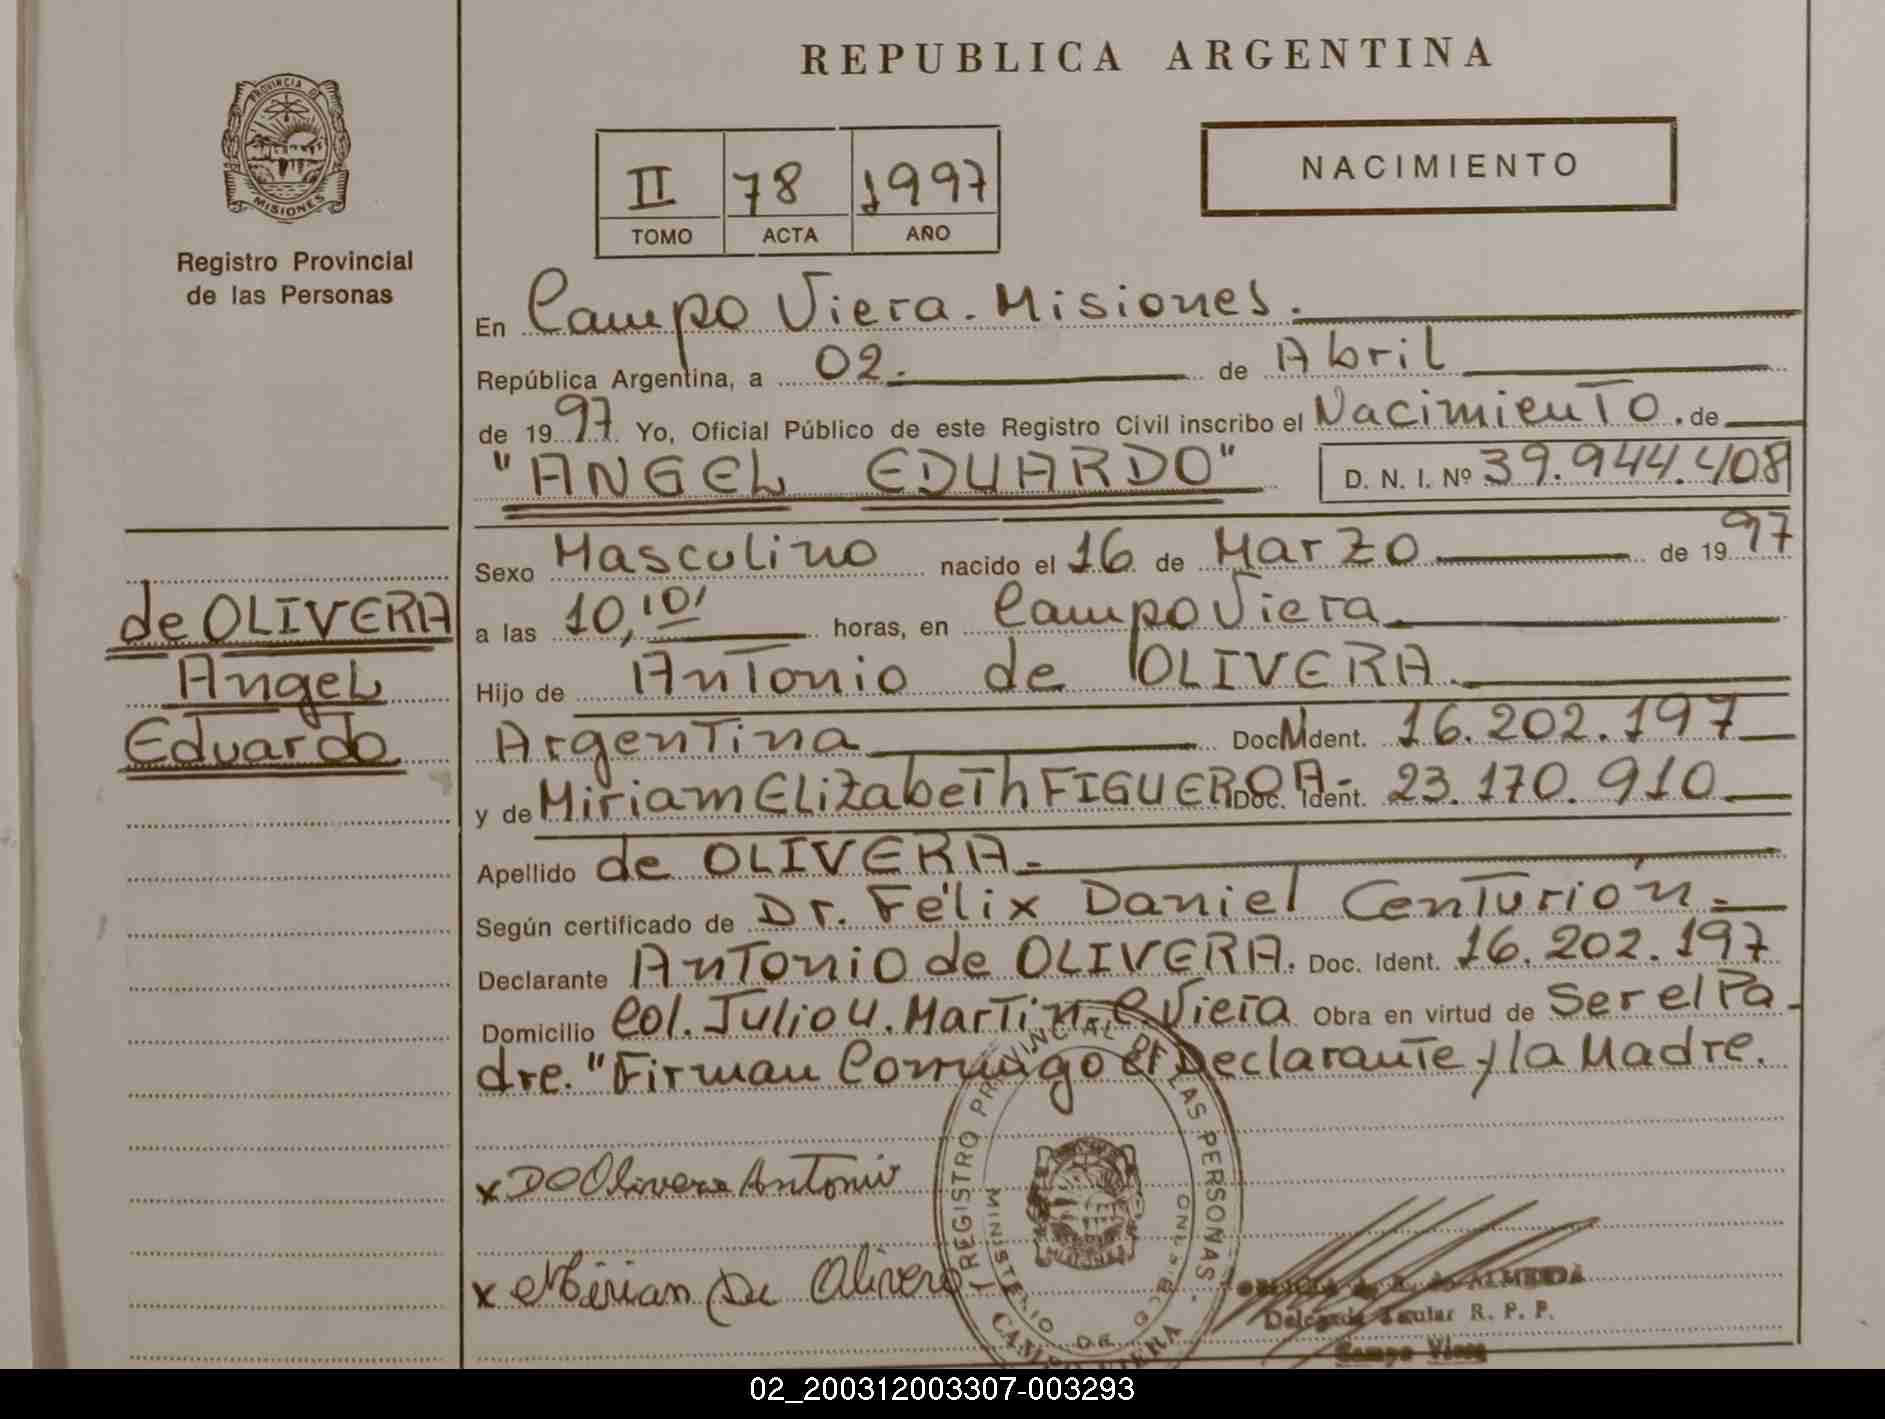 REPUBLICA ARGENTINA
PROVINCIA DE
MISIONES
Registro Provincial
de las Personas
II 78 1997
TOMO ACTA AÑO
NACIMIENTO
En Campo Viera. Misiones.
República Argentina, a 02. de Abril
de 1997 Yo, Oficial Público de este Registro Civil inscribo el Nacimiento. de
"ANGEL EDUARDO" D. N. I. Nº 39.944.408
Sexo Masculino nacido el 16 de Marzo de 1997
a las 10,10' horas, en Campo Viera
Hijo de Antonio de OLIVERA.
Argentina Doc. Ident. M 16.202.197
y de Miriam Elizabeth FIGUEROA- Doc. Ident. 23.170.910
Apellido de OLIVERA.-
Según certificado de Dr. Félix Daniel Centurión.-
Declarante Antonio de OLIVERA. Doc. Ident. 16.202.197
Domicilio Col. Julio U. Martin C Viera Obra en virtud de Ser el Pa-
dre. "Firman Conmigo el Declarante y la Madre.
de OLIVERA
Angel
Eduardo
x DO Olivera Antonio
x Mirian De Olivera
REGISTRO PROVINCIAL DE LAS PERSONAS
MINISTERIO DE GOBIERNO
CAMPO VIERA
ALMEIDA
Delegada Titular R. P. P.
Campo Viera
02_200312003307-003293